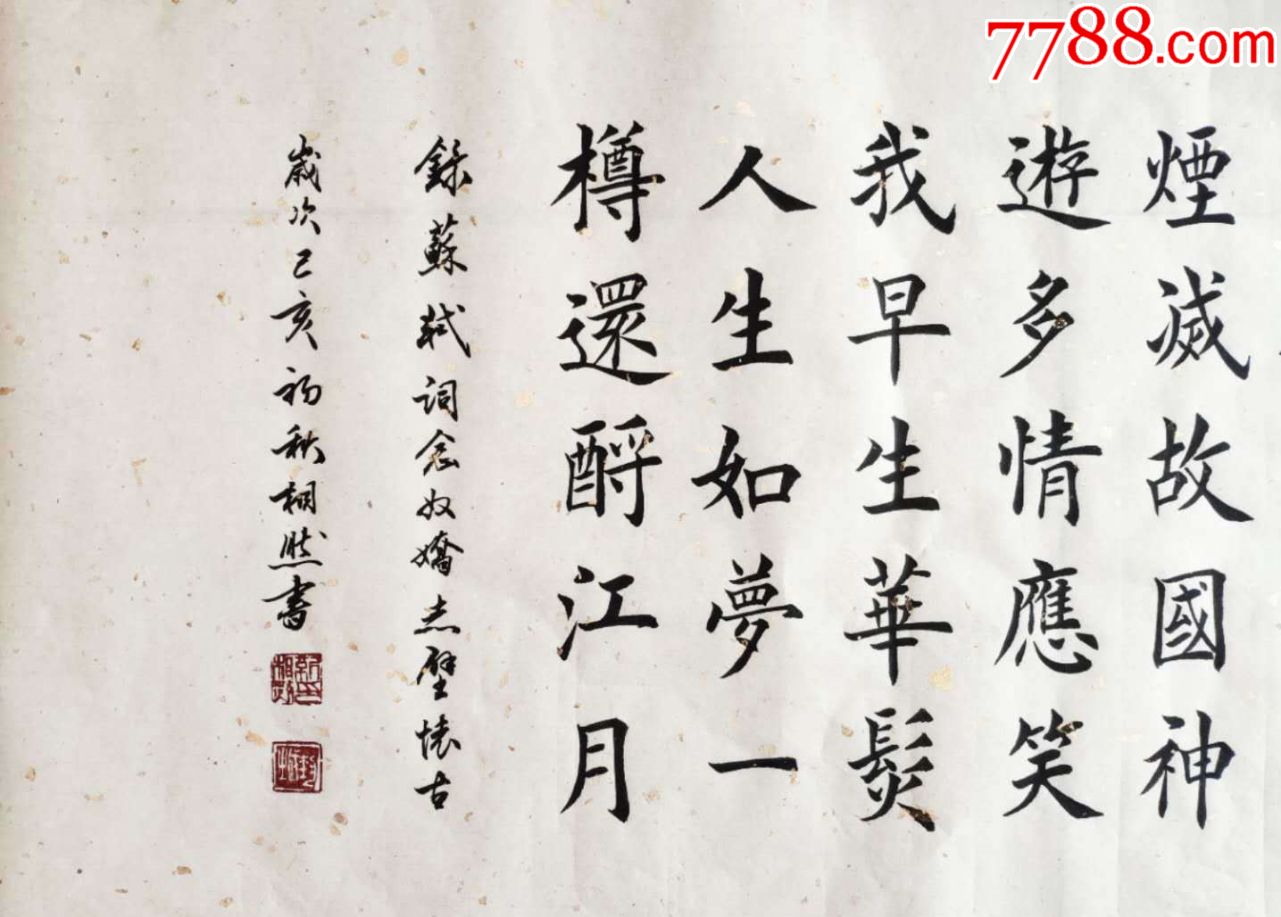 7788.com
煙滅故國神
遊多情應笑
我早生華髮
人生如夢一
樽還酹江月
錄蘇軾詞念奴嬌赤壁懷古
歲次己亥初秋然書